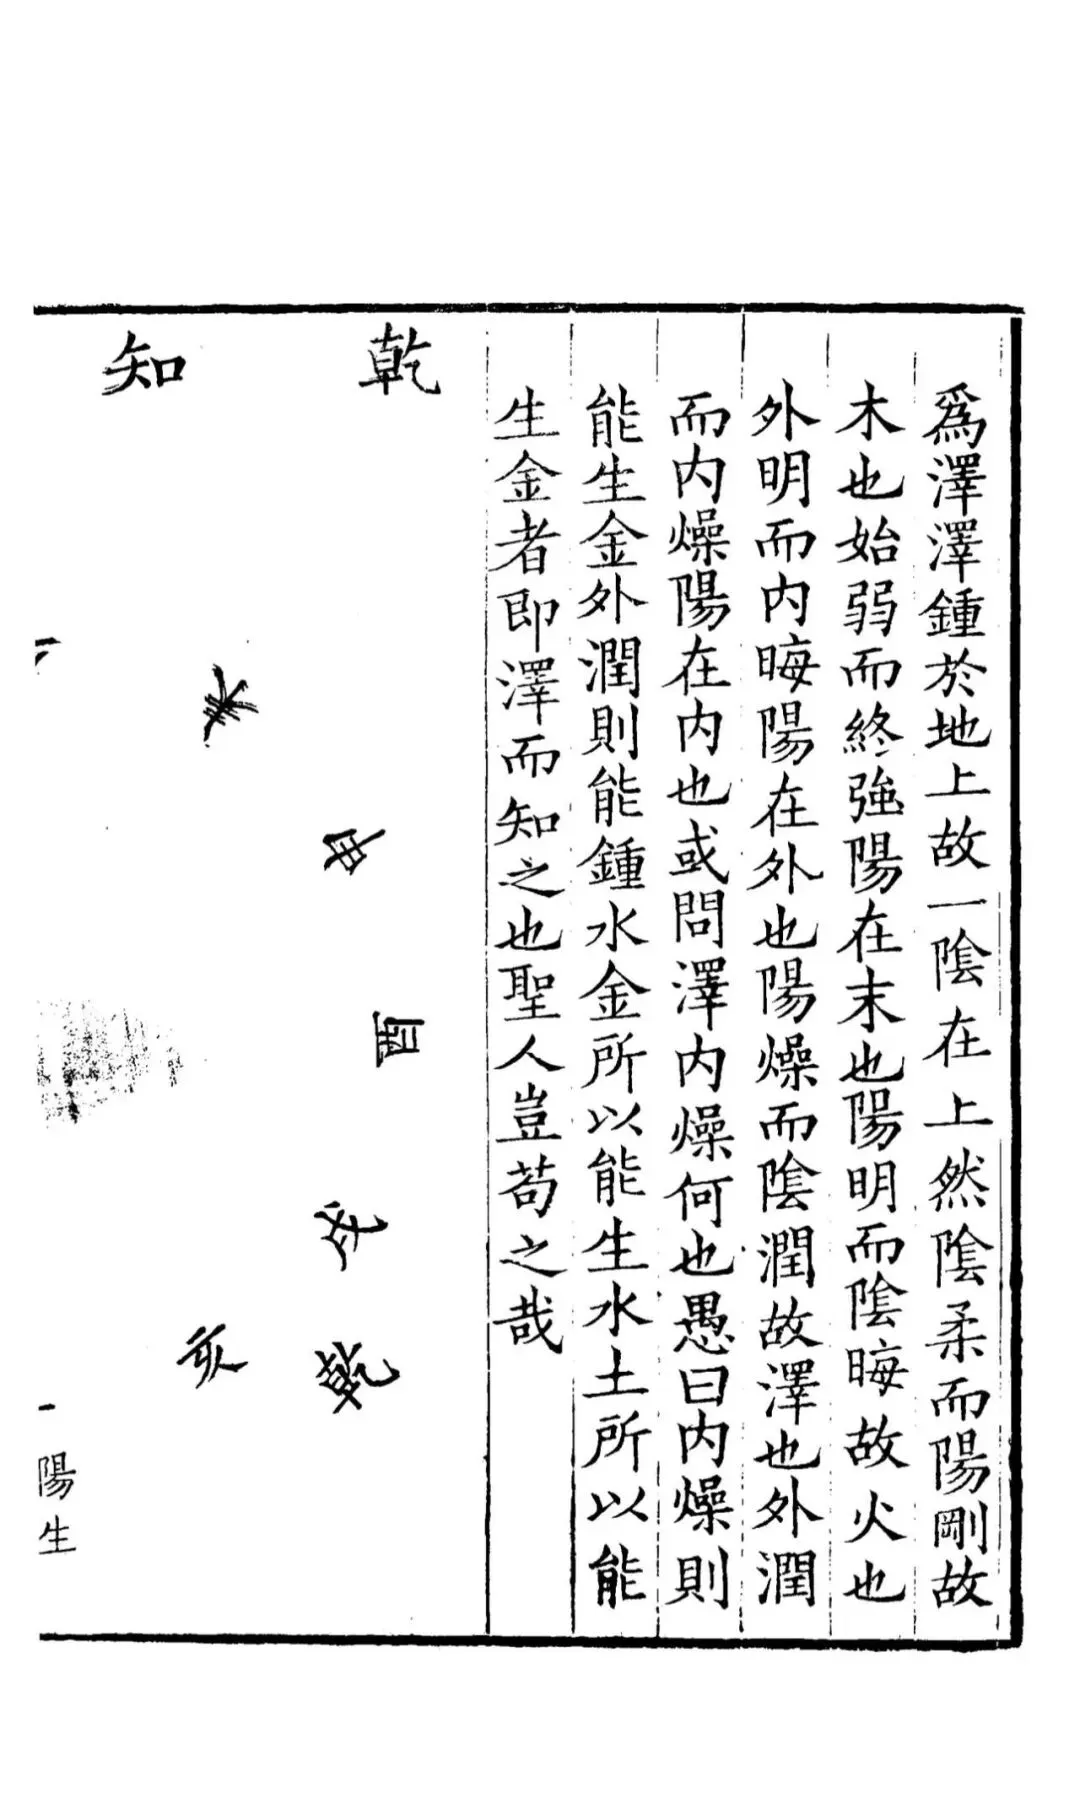 爲澤澤鍾於地上故一隂在上然隂柔而陽剛故
木也始弱而終強陽在末也陽明而隂晦故火也
外明而内晦陽在外也陽燥而隂潤故澤也外潤
而内燥陽在内也或問澤内燥何也愚曰内燥則
能生金外潤則能鍾水金所以能生水土所以能
生金者即澤而知之也聖人豈苟之哉
乾
知
未
申
酉
戌
乾
亥
陽生